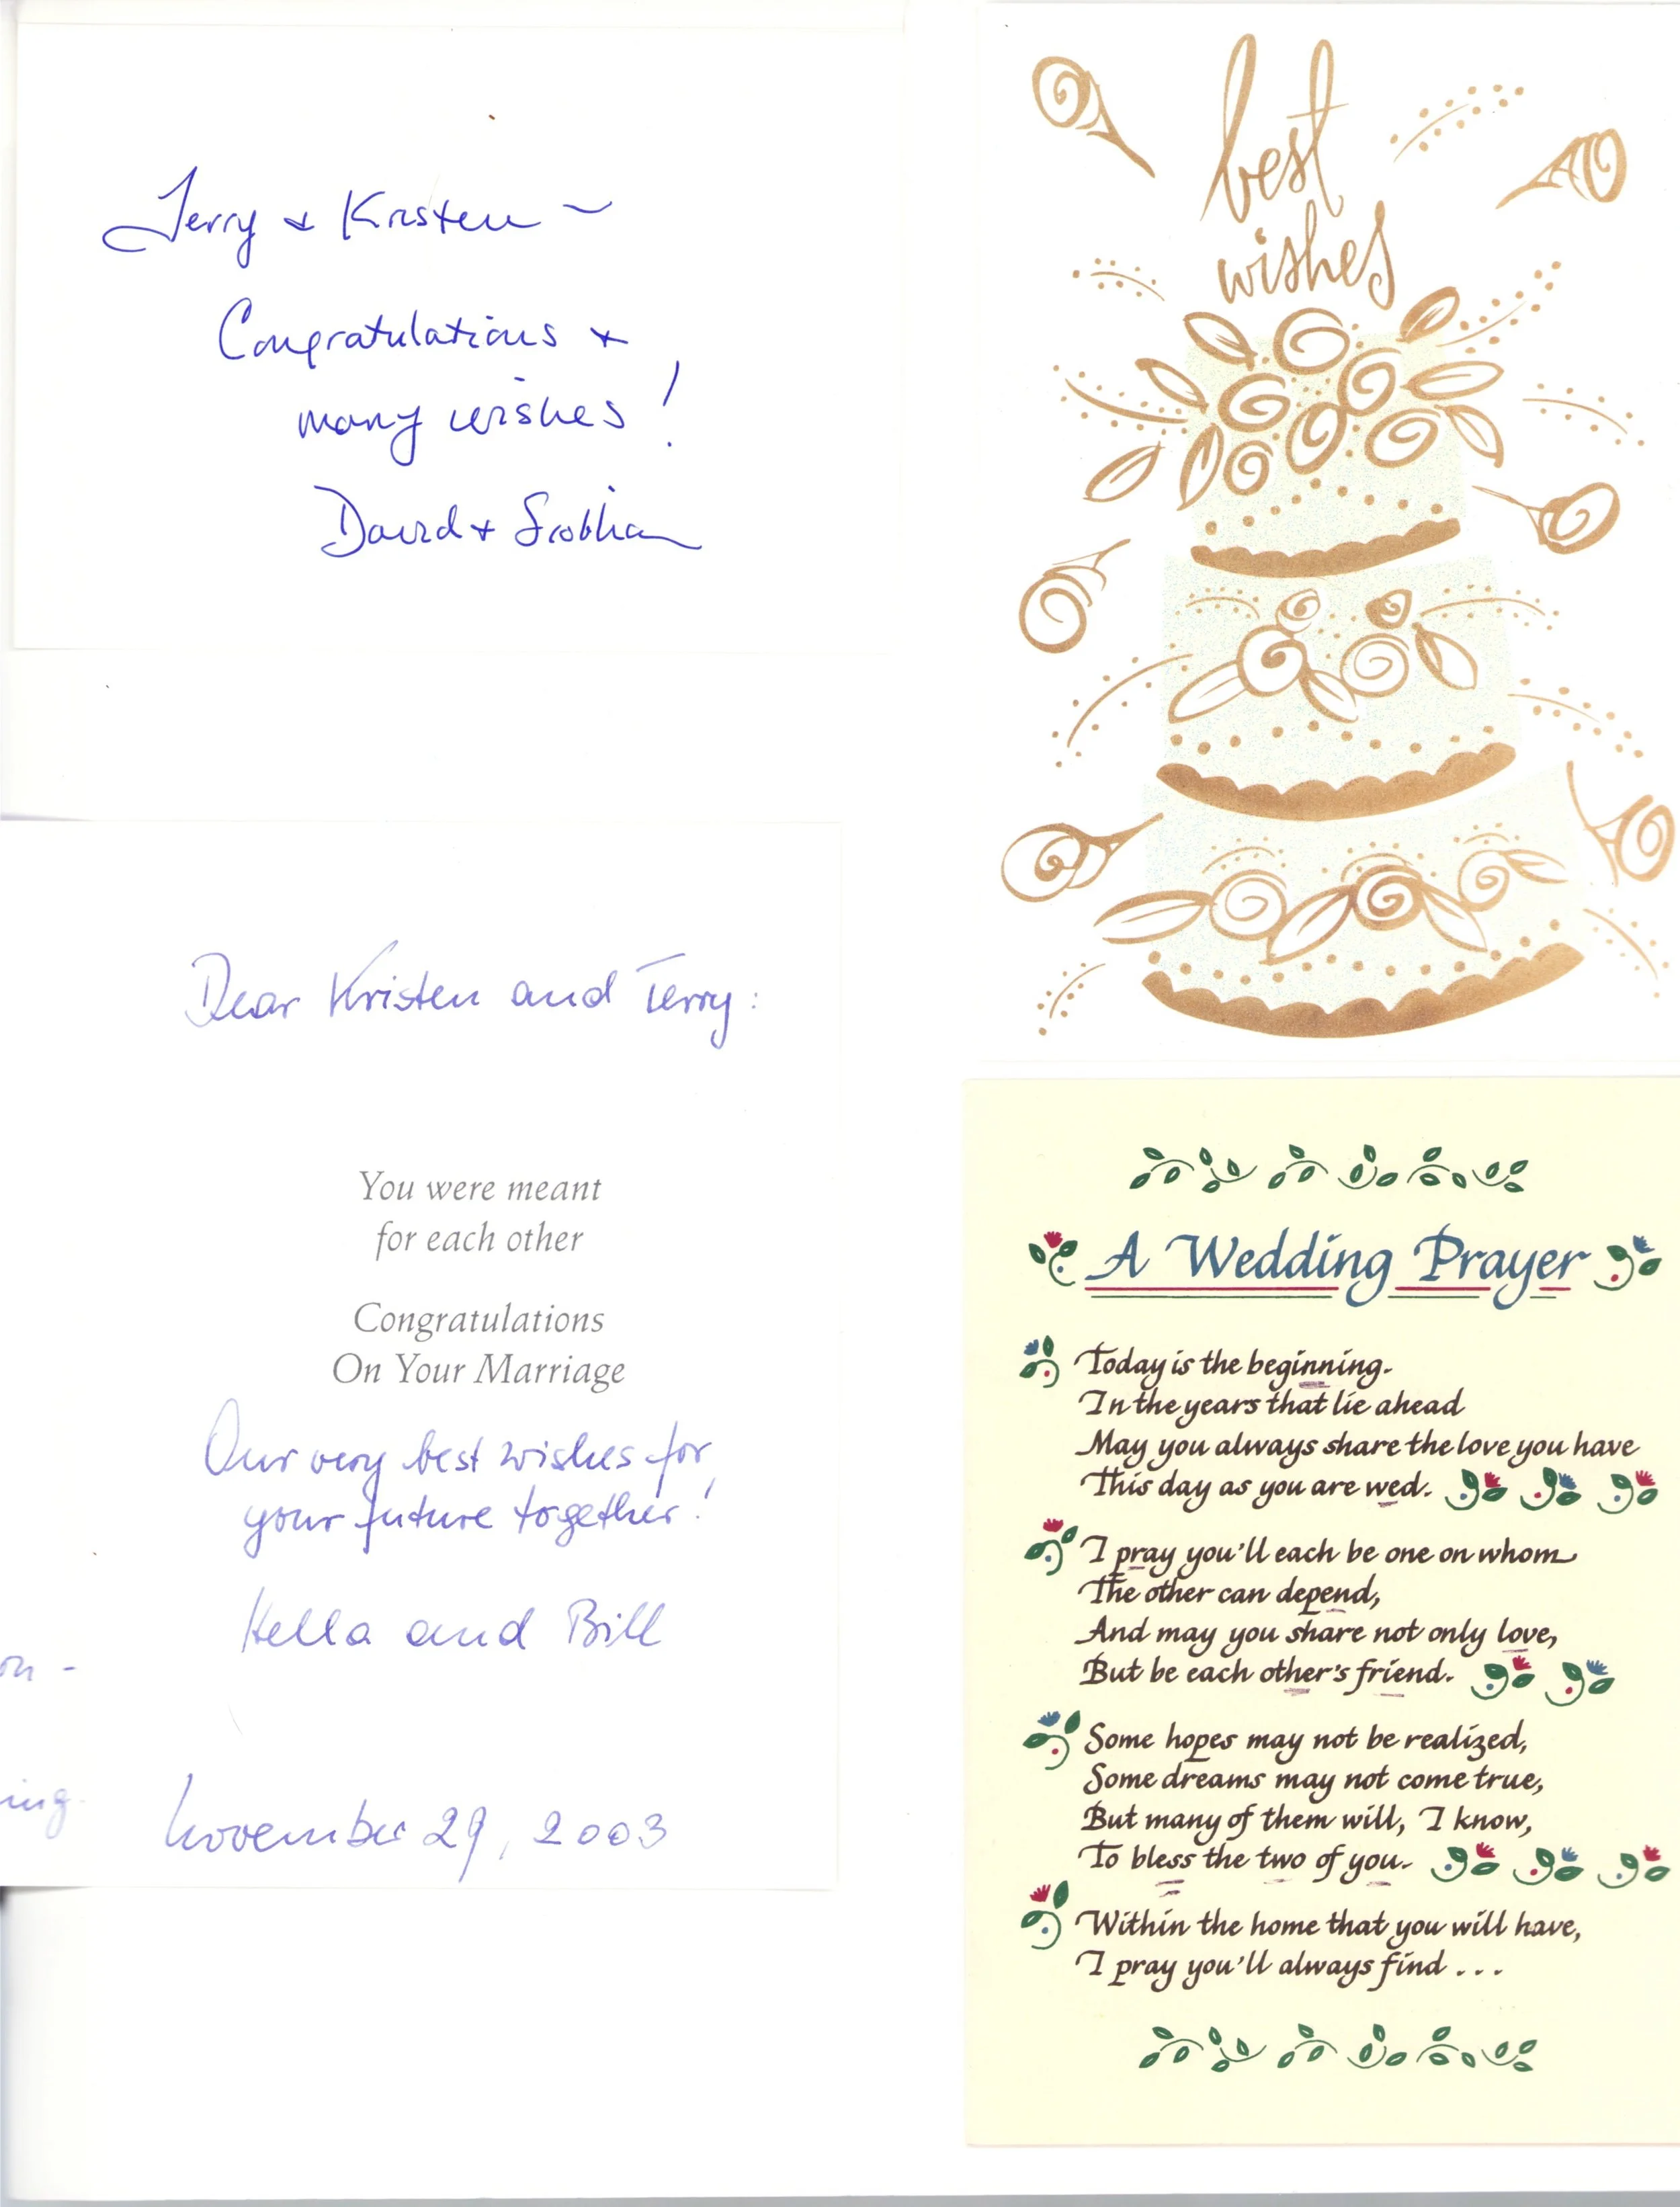 Terry + Kristen ~
Congratulations +
many wishes!
David + Siobhan
best
wishes
Dear Kristen and Terry:
You were meant
for each other
Congratulations
On Your Marriage
Our very best wishes for
your future together!
Hella and Bill
November 29, 2003
A Wedding Prayer
Today is the beginning.
In the years that lie ahead
May you always share the love you have
This day as you are wed.
I pray you'll each be one on whom
The other can depend,
And may you share not only love,
But be each other's friend.
Some hopes may not be realized,
Some dreams may not come true,
But many of them will, I know,
To bless the two of you.
Within the home that you will have,
I pray you'll always find . . .